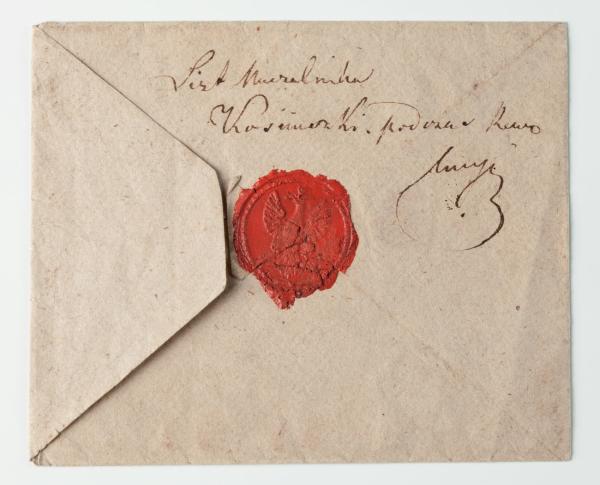 List Naczelnika
Kosciuszki. podczas Rewo
lucyi